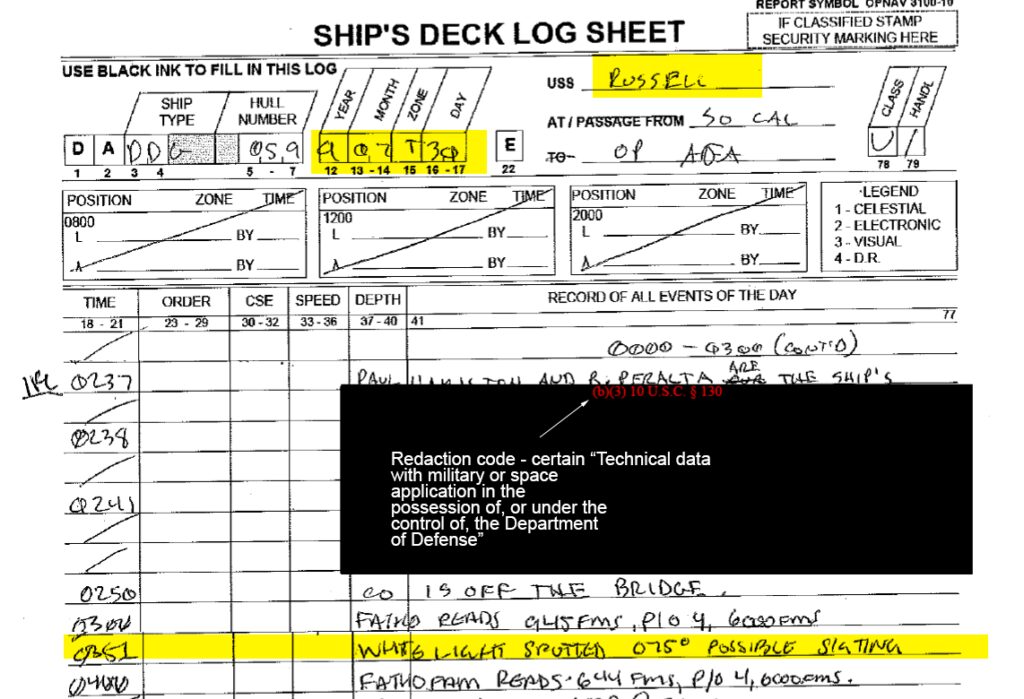 REPORT SYMBOL OPNAV 3100-10
IF CLASSIFIED STAMP
SECURITY MARKING HERE
SHIP'S DECK LOG SHEET
USE BLACK INK TO FILL IN THIS LOG
SHIP TYPE
HULL NUMBER
YEAR
MONTH
ZONE
DAY
USS RUSSELL
CLASS
HANDL
AT / PASSAGE FROM SO CAL
D A DDG 059 9 07 T 30 E
TO OP AREA
U /
1 2 3 4 5 - 7 12 13 - 14 15 16 - 17 22 78 79
POSITION ZONE TIME
0800
L BY
λ BY
POSITION ZONE TIME
1200
L BY
λ BY
POSITION ZONE TIME
2000
L BY
λ BY
LEGEND
1 - CELESTIAL
2 - ELECTRONIC
3 - VISUAL
4 - D.R.
TIME ORDER CSE SPEED DEPTH RECORD OF ALL EVENTS OF THE DAY
18 - 21 23 - 29 30 - 32 33 - 36 37 - 40 41 77
0000 - 0300 (CONT'D)
0237 PAUL HAMILTON AND R. PERALTA ARE THE SHIP'S
(b)(3) 10 U.S.C. § 130
0238
Redaction code - certain “Technical data
with military or space
application in the
possession of, or under the
control of, the Department
of Defense”
0241
0250 CO IS OFF THE BRIDGE.
0300 FATHO READS 945 FMS, P/O 4, 6000FMS
0351 WHITE LIGHT SPOTTED 075° POSSIBLE SIGTING
0400 FATHOFAM READS 644 FMS, P/O 4, 6000FMS.